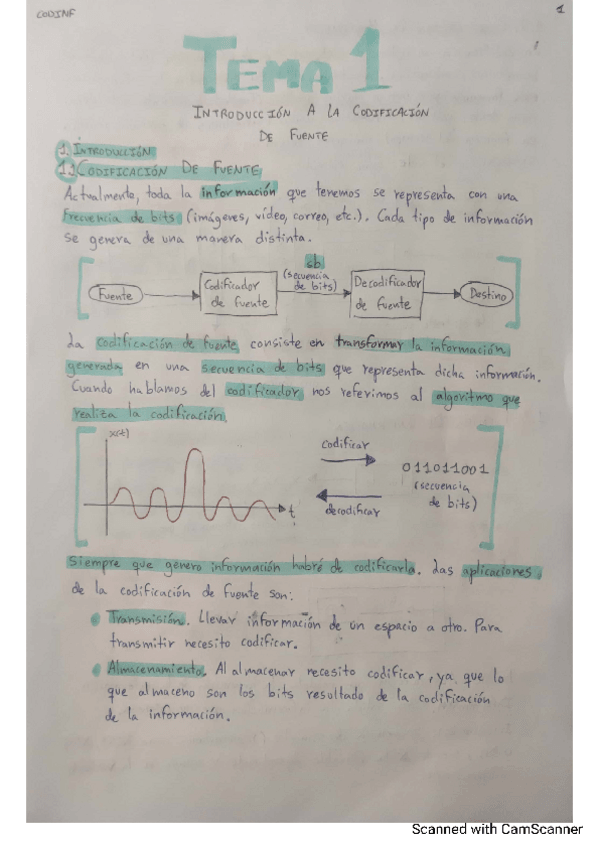 CODINF
1
TEMA 1
INTRODUCCIÓN A LA CODIFICACIÓN
DE FUENTE
1. INTRODUCCIÓN
1.1 CODIFICACIÓN DE FUENTE
Actualmente, toda la información que tenemos se representa con una
frecuencia de bits (imágenes, vídeo, correo, etc.). Cada tipo de información
se genera de una manera distinta.
sb
(secuencia
de bits)
Fuente
Codificador
de fuente
Decodificador
de fuente
Destino
La codificación de fuente consiste en transformar la información
generada en una secuencia de bits que representa dicha información.
Cuando hablamos del codificador nos referimos al algoritmo que
realiza la codificación.
x(t)
t
codificar
decodificar
011011001
(secuencia
de bits)
Siempre que genero información habré de codificarla. Las aplicaciones
de la codificación de fuente son:
Transmisión. Llevar información de un espacio a otro. Para
transmitir necesito codificar.
Almacenamiento. Al almacenar necesito codificar, ya que lo
que almaceno son los bits resultado de la codificación
de la información.
Scanned with CamScanner